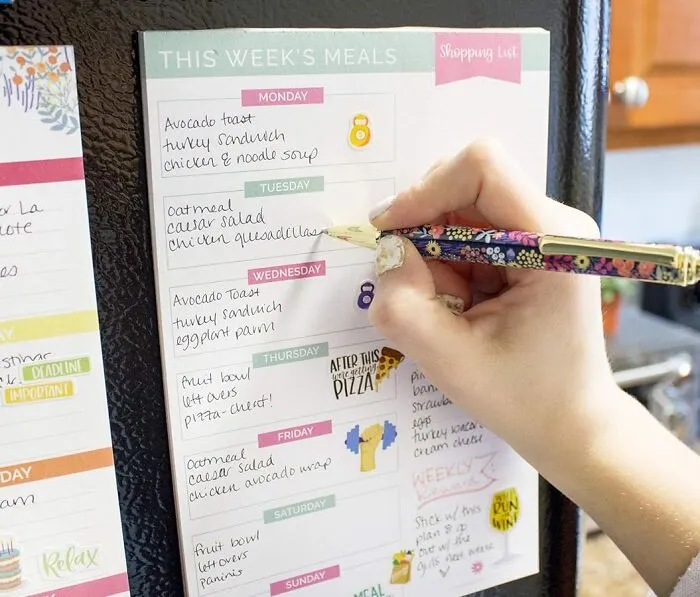 THIS WEEK'S MEALS
Shopping List
MONDAY
Avocado toast
turkey sandwich
chicken & noodle soup
TUESDAY
oatmeal
caesar salad
chicken quesadillas
WEDNESDAY
Avocado Toast
turkey sandwich
eggplant parm
THURSDAY
fruit bowl
left overs
pizza-cheat!
AFTER THIS
we're getting
PIZZA
FRIDAY
Oatmeal
caesar salad
chicken avocado wrap
SATURDAY
fruit bowl
left overs
paninis
SUNDAY
eggs
turkey bacon
cream cheese
WEEKLY
Reward
Stick w/ this
plan & go
out w/ the
girls next week
WILL
RUN
WINE
MEAL
La
DEADLINE
IMPORTANT
DAY
Relax